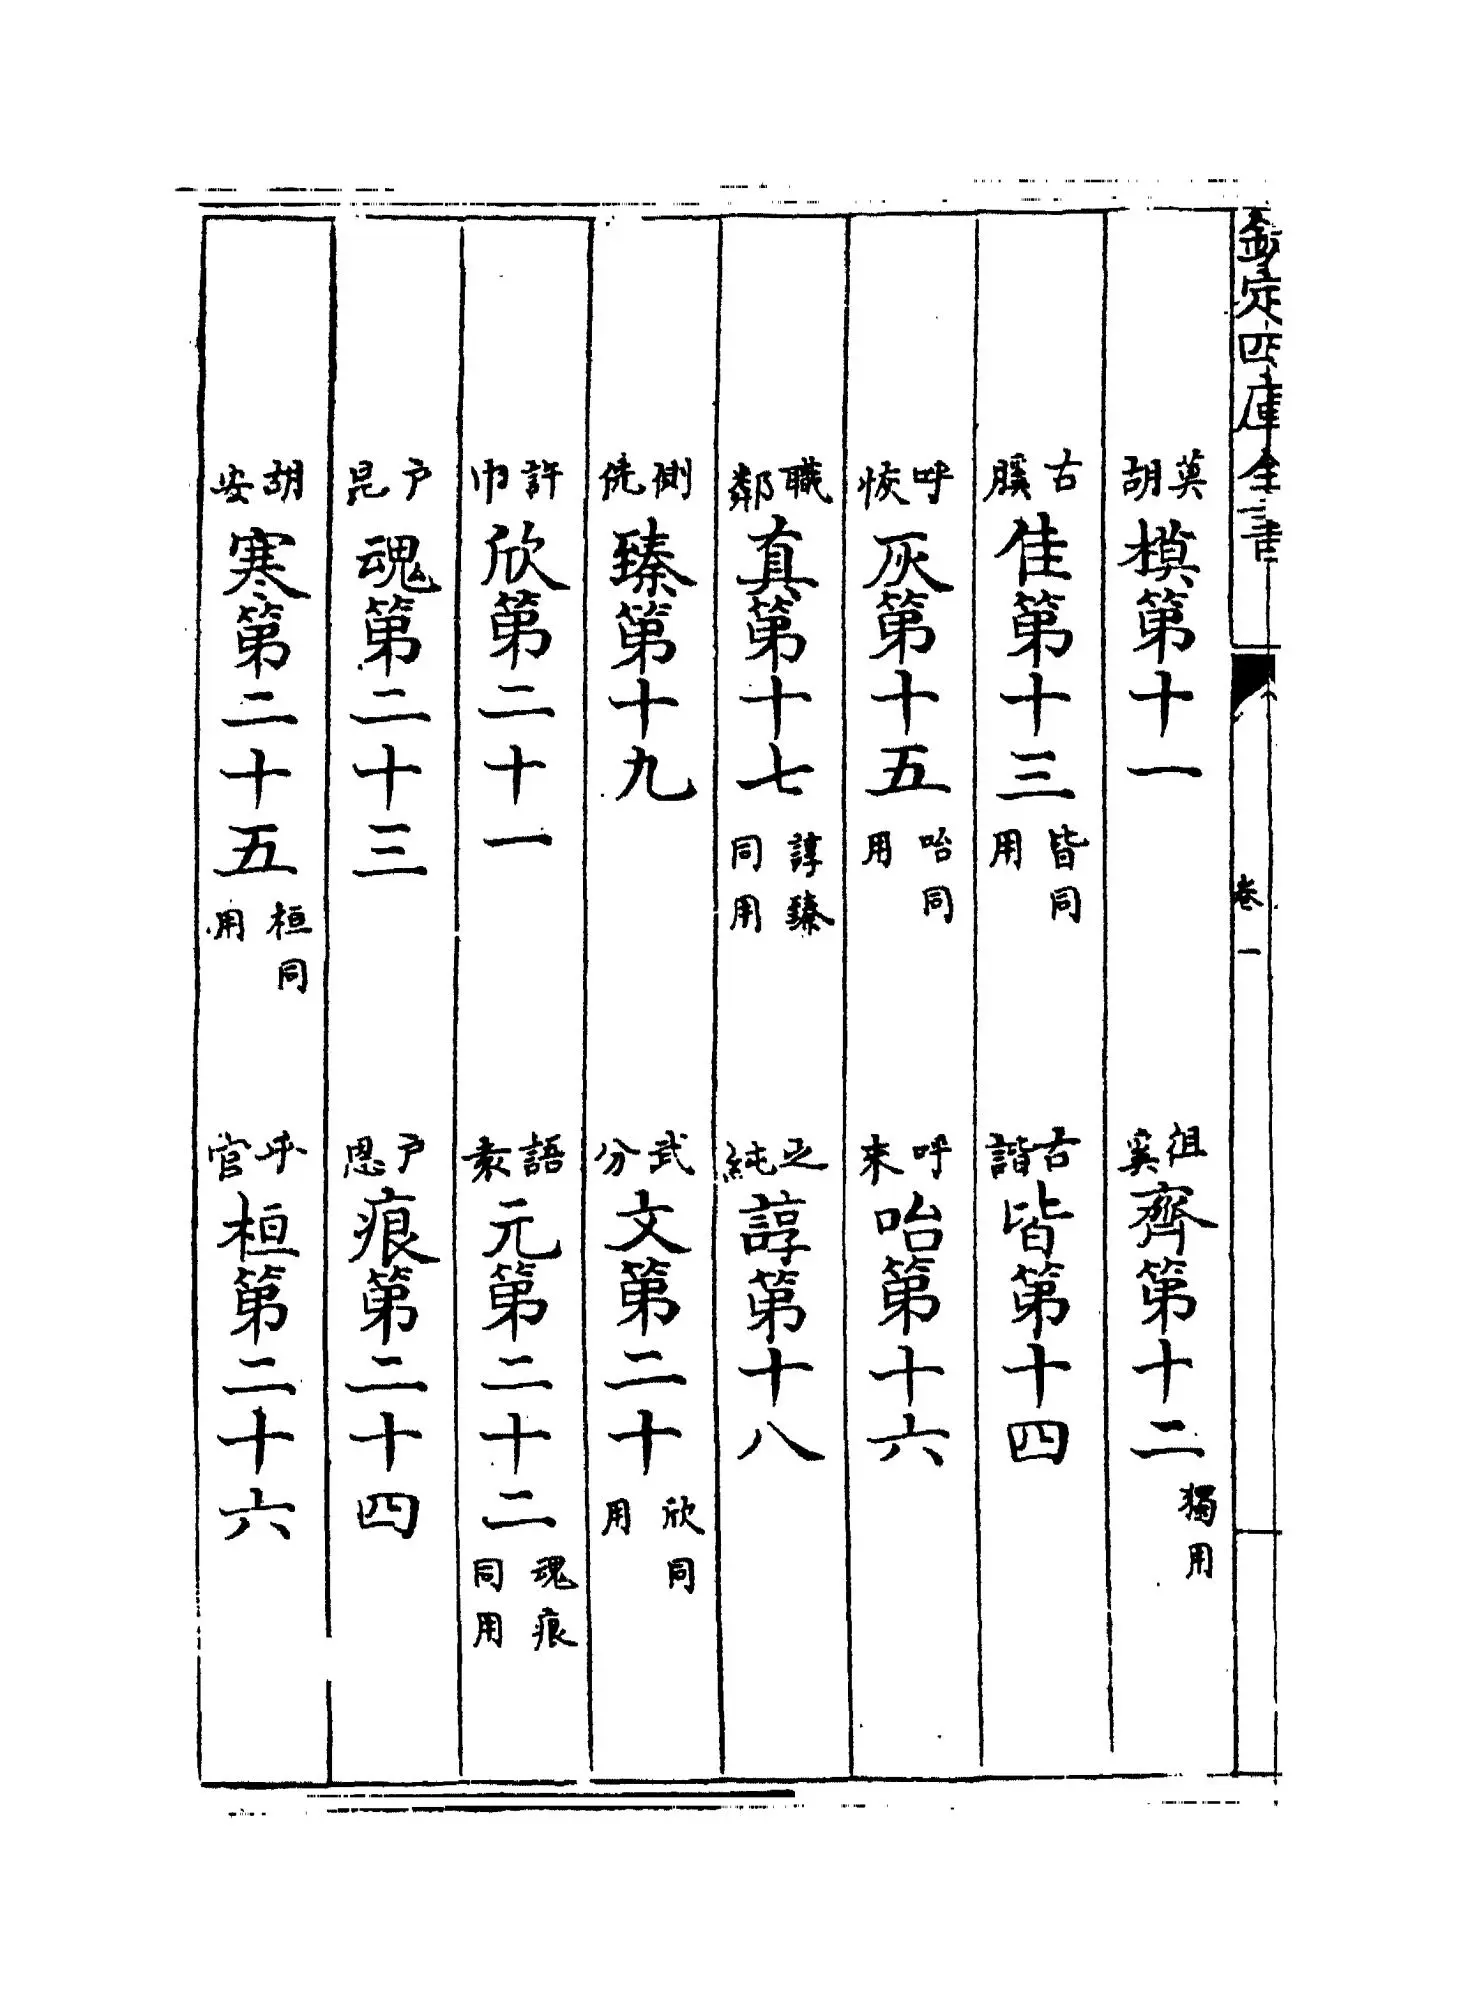 欽定四庫全書
卷一
莫胡模第十一 徂奚齊第十二獨用
古膎佳第十三皆同用 古諧皆第十四
呼恢灰第十五咍同用 呼來咍第十六
職鄰真第十七諄臻同用 之純諄第十八
側侁臻第十九 武分文第二十欣同用
許巾欣第二十一 語袁元第二十二魂痕同用
户昆魂第二十三 户恩痕第二十四
胡安寒第二十五桓同用 乎官桓第二十六